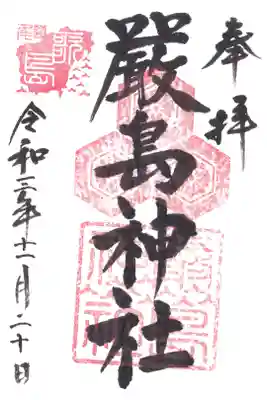 奉拝
厳島神社
令和三年十一月二十日